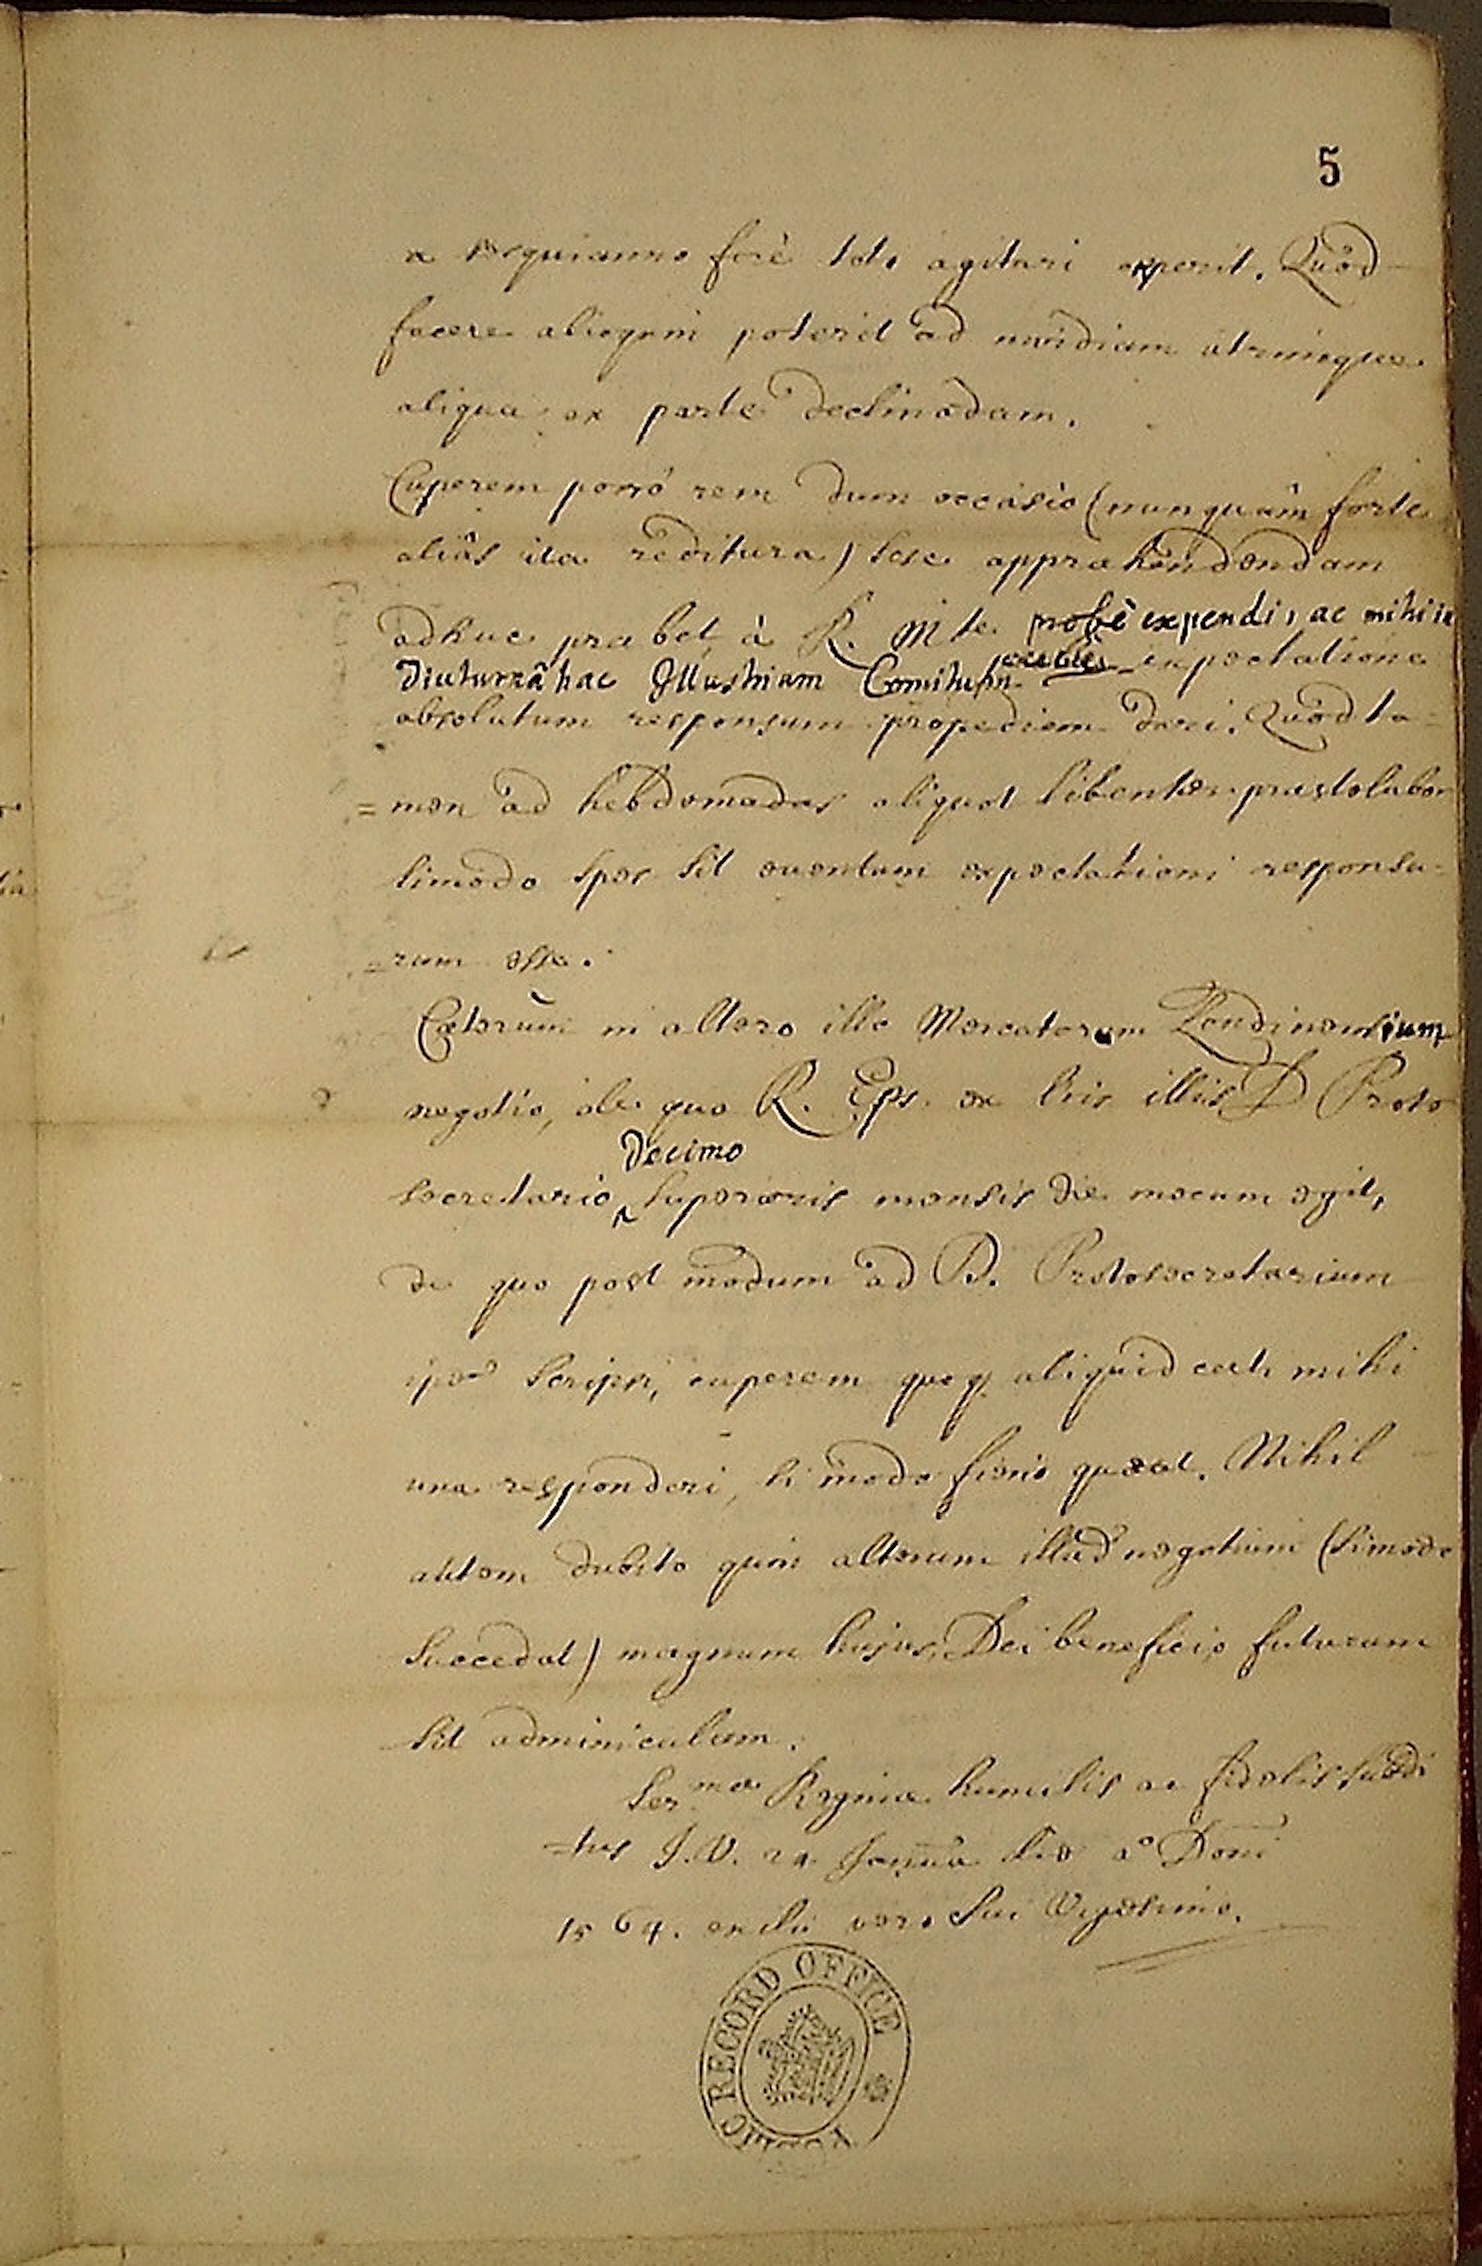 5
a sesquianno ferè toto agitari cœperit. Quòd
facere alioquin poterit ad invidiam utrinque
aliqua ex parte declinādam.
Cuperem porrò rem dum occasio (nunquàm forte
aliàs ita reditura) sese appræhendendam
adhuc præbet, à R. Mte. probè expendi, ac mihi in
diuturnâ hac Illustrium Comitum expectatione
absolutum responsum propediem dari. Quòd ta=
=men ad hebdomadas aliquot libenter præstolabor
simodo spes sit eventum expectationi responsu=
=rum esse.
Cæterùm in altero illo Mercatorum Londinensium
negotio, de quo R. Eps. ex lris illis D Proto
decimo
secretario ^ superioris mensis die mecum egit,
de quo post modum ad D. Protosecretarium
ipse scripsi, cuperem quoq. aliquid certi mihi
una responderi, si modo fieri queat. Nihil
autem dubito quin alterum illud negotium (simodo
succedat) magnum hujus, Dei beneficio futurum
sit adminiculum.
Ser.mæ Reginæ humilis ac fidelis subdi
=tus J.V. 24 Januā die aº Domi
1564. exilii vero sui Vigesimo.
PUBLIC RECORD OFFICE